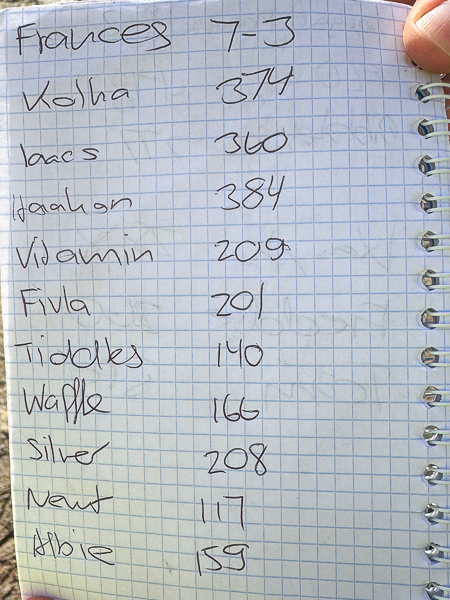 Frances 7-3
Kolha 374
Iaacs 360
Haakon 384
Vitamin 209
Fivla 201
Tiddles 140
Waffle 166
Silver 208
Newt 117
Albie 159